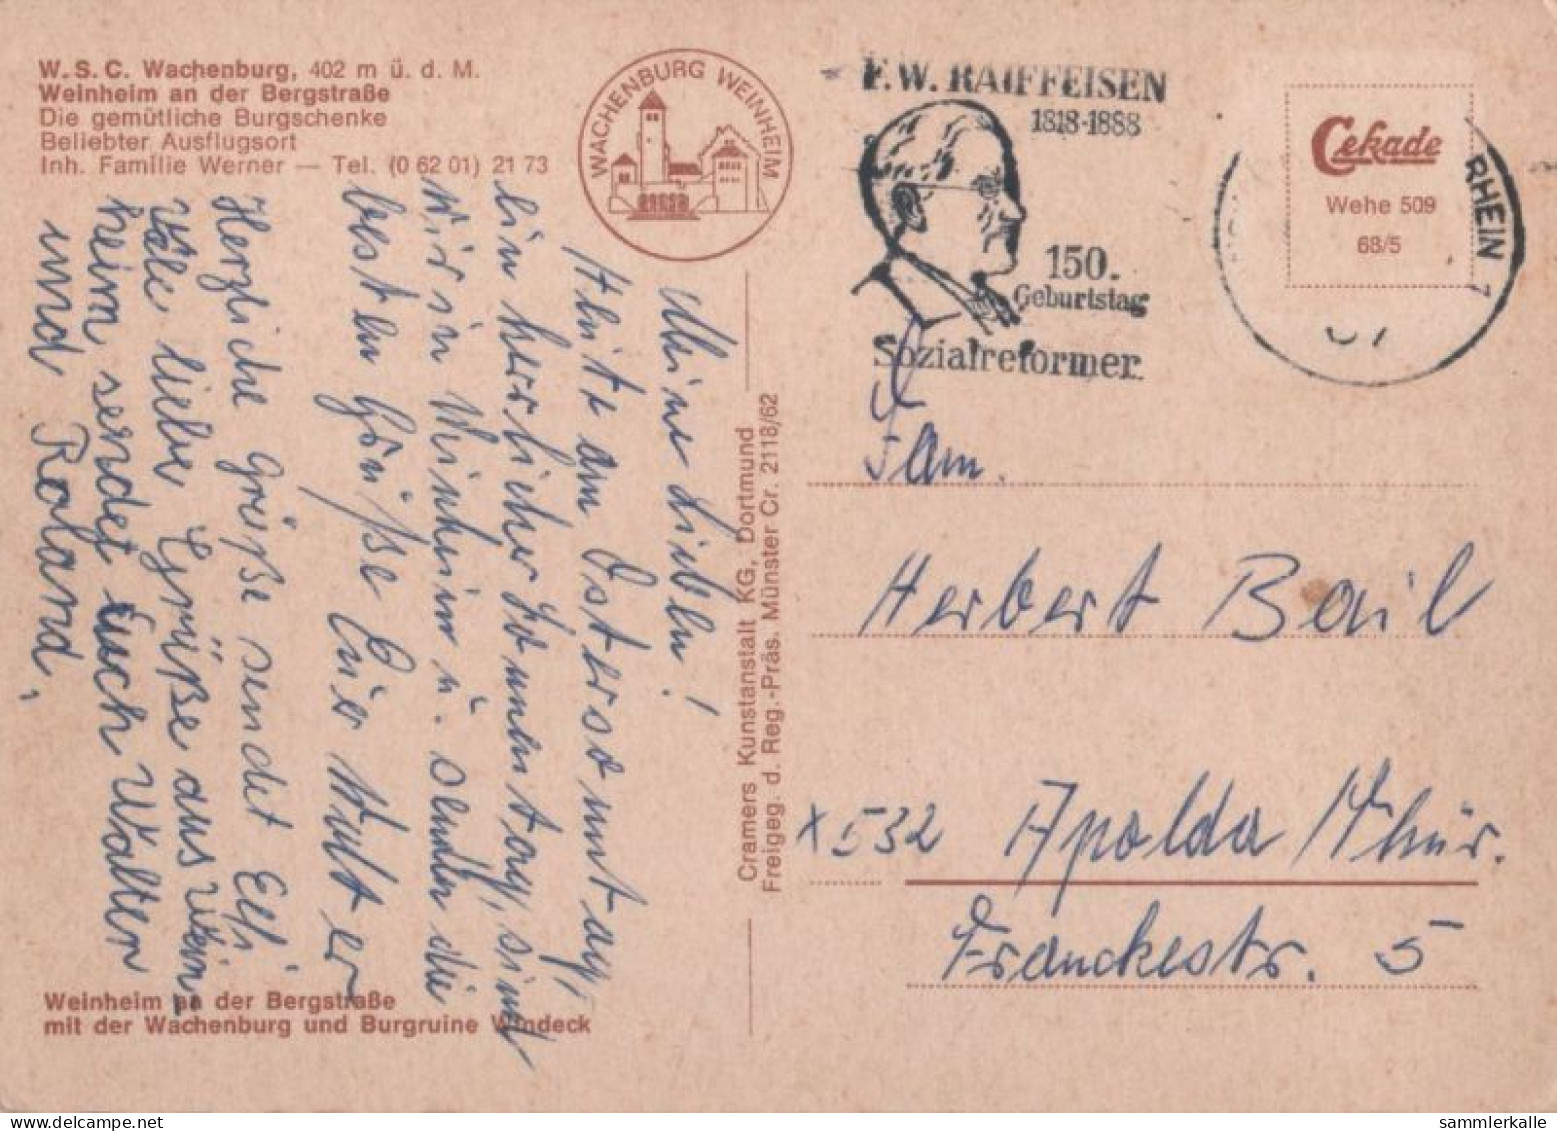 W.S.C. Wachenburg, 402 m ü. d. M.
Weinheim an der Bergstraße
Die gemütliche Burgschenke
Beliebter Ausflugsort
Inh. Familie Werner — Tel. (0 62 01) 21 73
WACHENBURG WEINHEIM
F.W. RAIFFEISEN
1818-1888
150.
Geburtstag
Sozialreformer
RHEIN
Cekade
Wehe 509
68/5
Meine Lieben!
Heute am Ostersonntag,
ein herrlicher Sonnentag, sind
wir in Weinheim u. senden die
besten Grüße Euer
Herzliche Grüße sendet Elfi
Viele liebe Grüße aus Wein-
heim sendet Euch Walter
und Roland,
Cramers Kunstanstalt KG, Dortmund
Freigeg. d. Reg.-Präs. Münster Cr. 2118/62
Fam.
Herbert Bail
x 532 Apolda /Thür.
Franckestr. 5
Weinheim an der Bergstraße
mit der Wachenburg und Burgruine Windeck
sammlerkalle